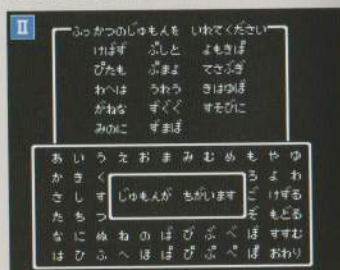 II
ふっかつのじゅもんを いれてください
けばず ぶしと よもきぼ
ぴたも ぶまよ てさぶぎ
わへは うわう きはゆぼ
がねな ずくく すそびに
みのに ずまぼ
あ い う え お ま み む め も や ゆ
か き く ろ よ わ
さ し す ご けずる
じゅもんが ちがいます
た ち つ ぞ もどる
な に ぬ ね の ば び ぶ べ ぼ すすむ
は ひ ふ へ ほ ぱ ぴ ぷ ぺ ぽ おわり